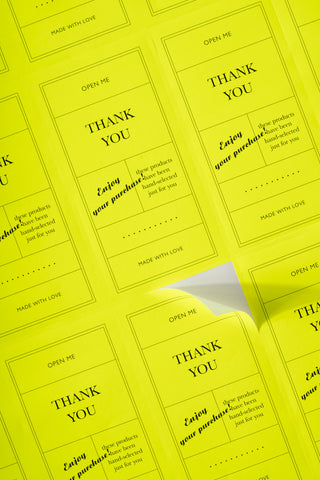 MADE WITH LOVE
OPEN ME
THANK
YOU
Enjoy
your purchase
these products
have been
hand-selected
just for you
MADE WITH LOVE
OPEN ME
THANK
YOU
Enjoy
your purchase
these products
have been
hand-selected
just for you
MADE WITH LOVE
these products
have been
hand-selected
just for you
MADE WITH LOVE
OPEN ME
THANK
YOU
Enjoy
your purchase
these products
have been
hand-selected
just for you
OPEN ME
THANK
YOU
Enjoy
your purchase
these products
have been
hand-selected
just for you
OPEN ME